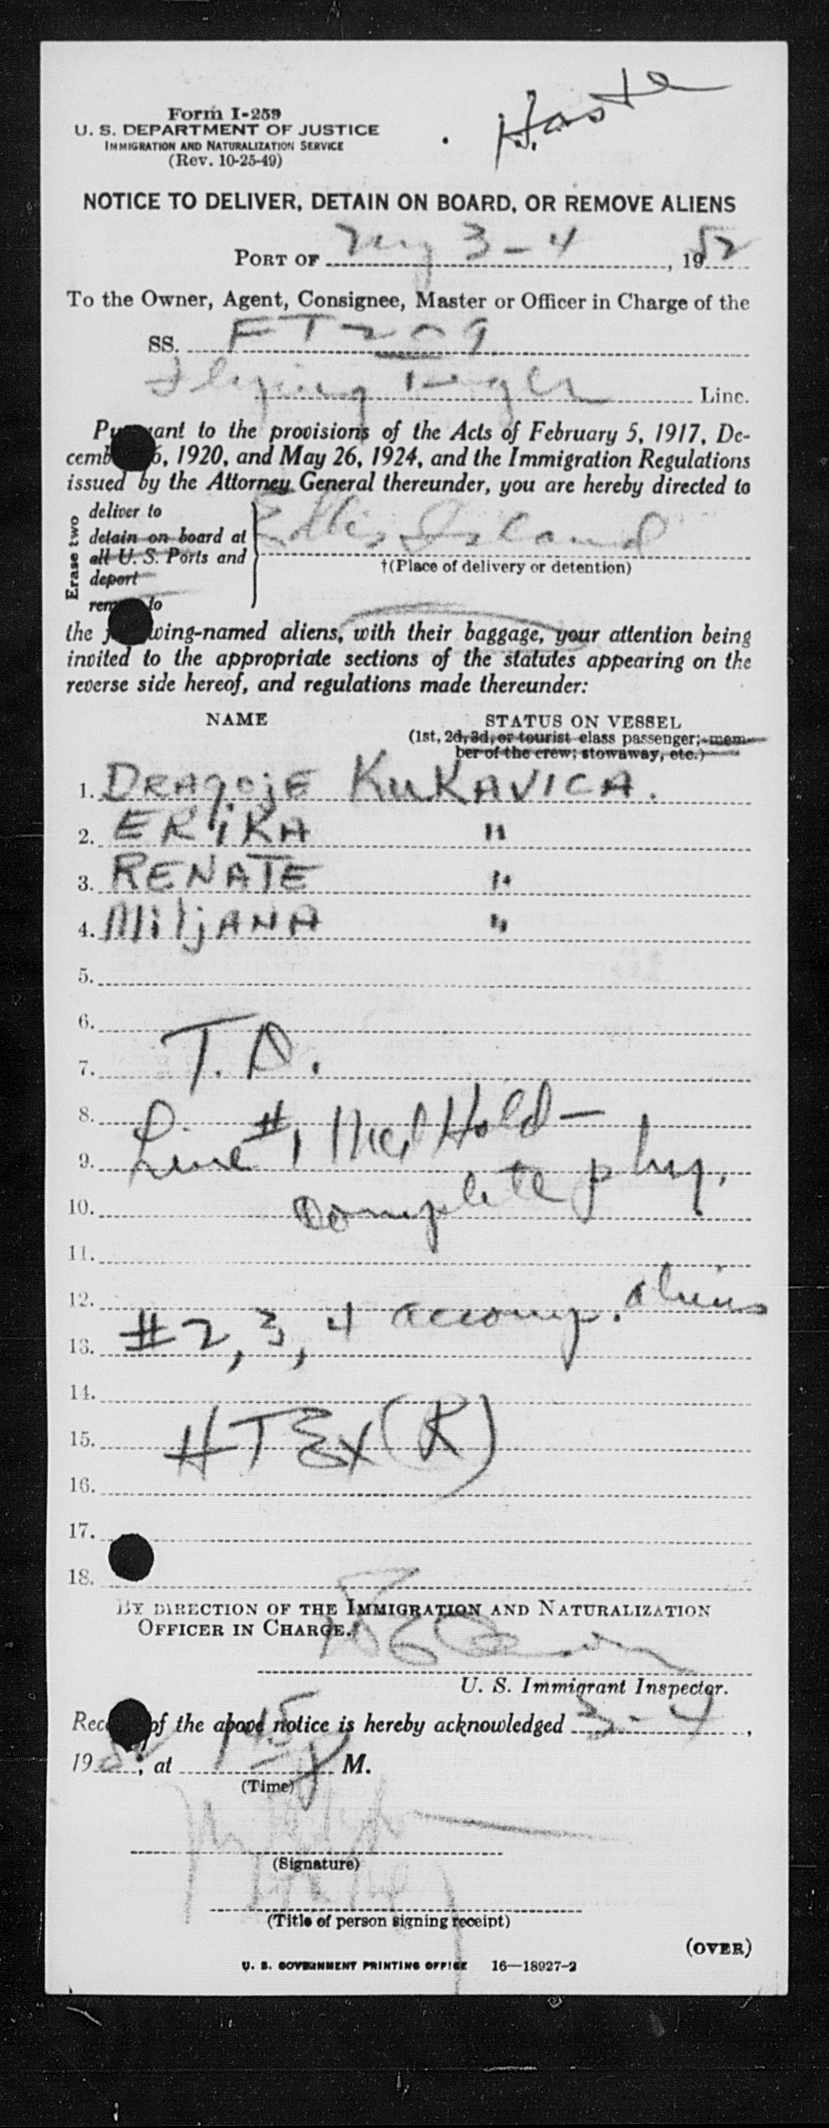 Haste
Form I-259
U. S. DEPARTMENT OF JUSTICE
IMMIGRATION AND NATURALIZATION SERVICE
(Rev. 10-25-49)
NOTICE TO DELIVER, DETAIN ON BOARD, OR REMOVE ALIENS
PORT OF NY 3-4, 1952
To the Owner, Agent, Consignee, Master or Officer in Charge of the
SS. FT 209
Flying Tiger Line.
Pursuant to the provisions of the Acts of February 5, 1917, De-
cember 26, 1920, and May 26, 1924, and the Immigration Regulations
issued by the Attorney General thereunder, you are hereby directed to
Erase two
deliver to
detain on board at
all U. S. Ports and
deport
remove to
Ellis Island
†(Place of delivery or detention)
the following-named aliens, with their baggage, your attention being
invited to the appropriate sections of the statutes appearing on the
reverse side hereof, and regulations made thereunder:
NAME STATUS ON VESSEL
(1st, 2d, 3d, or tourist class passenger; mem-
ber of the crew; stowaway, etc.)
1. DRAGOJE KUKAVICA.
2. ERIKA "
3. RENATE "
4. MILJANA "
5.
6.
7. T.D.
8.
9. Line #1 Med Hold—
10. complete phy.
11.
12.
13. #2, 3, 4 accomp. aliens
14.
15. HTEx (R)
16.
17.
18.
BY DIRECTION OF THE IMMIGRATION AND NATURALIZATION
OFFICER IN CHARGE.
U. S. Immigrant Inspector.
Receipt of the above notice is hereby acknowledged 3-4,
1952, at M.
(Time)
(Signature)
(Title of person signing receipt)
(OVER)
U. S. GOVERNMENT PRINTING OFFICE 16—18927-2